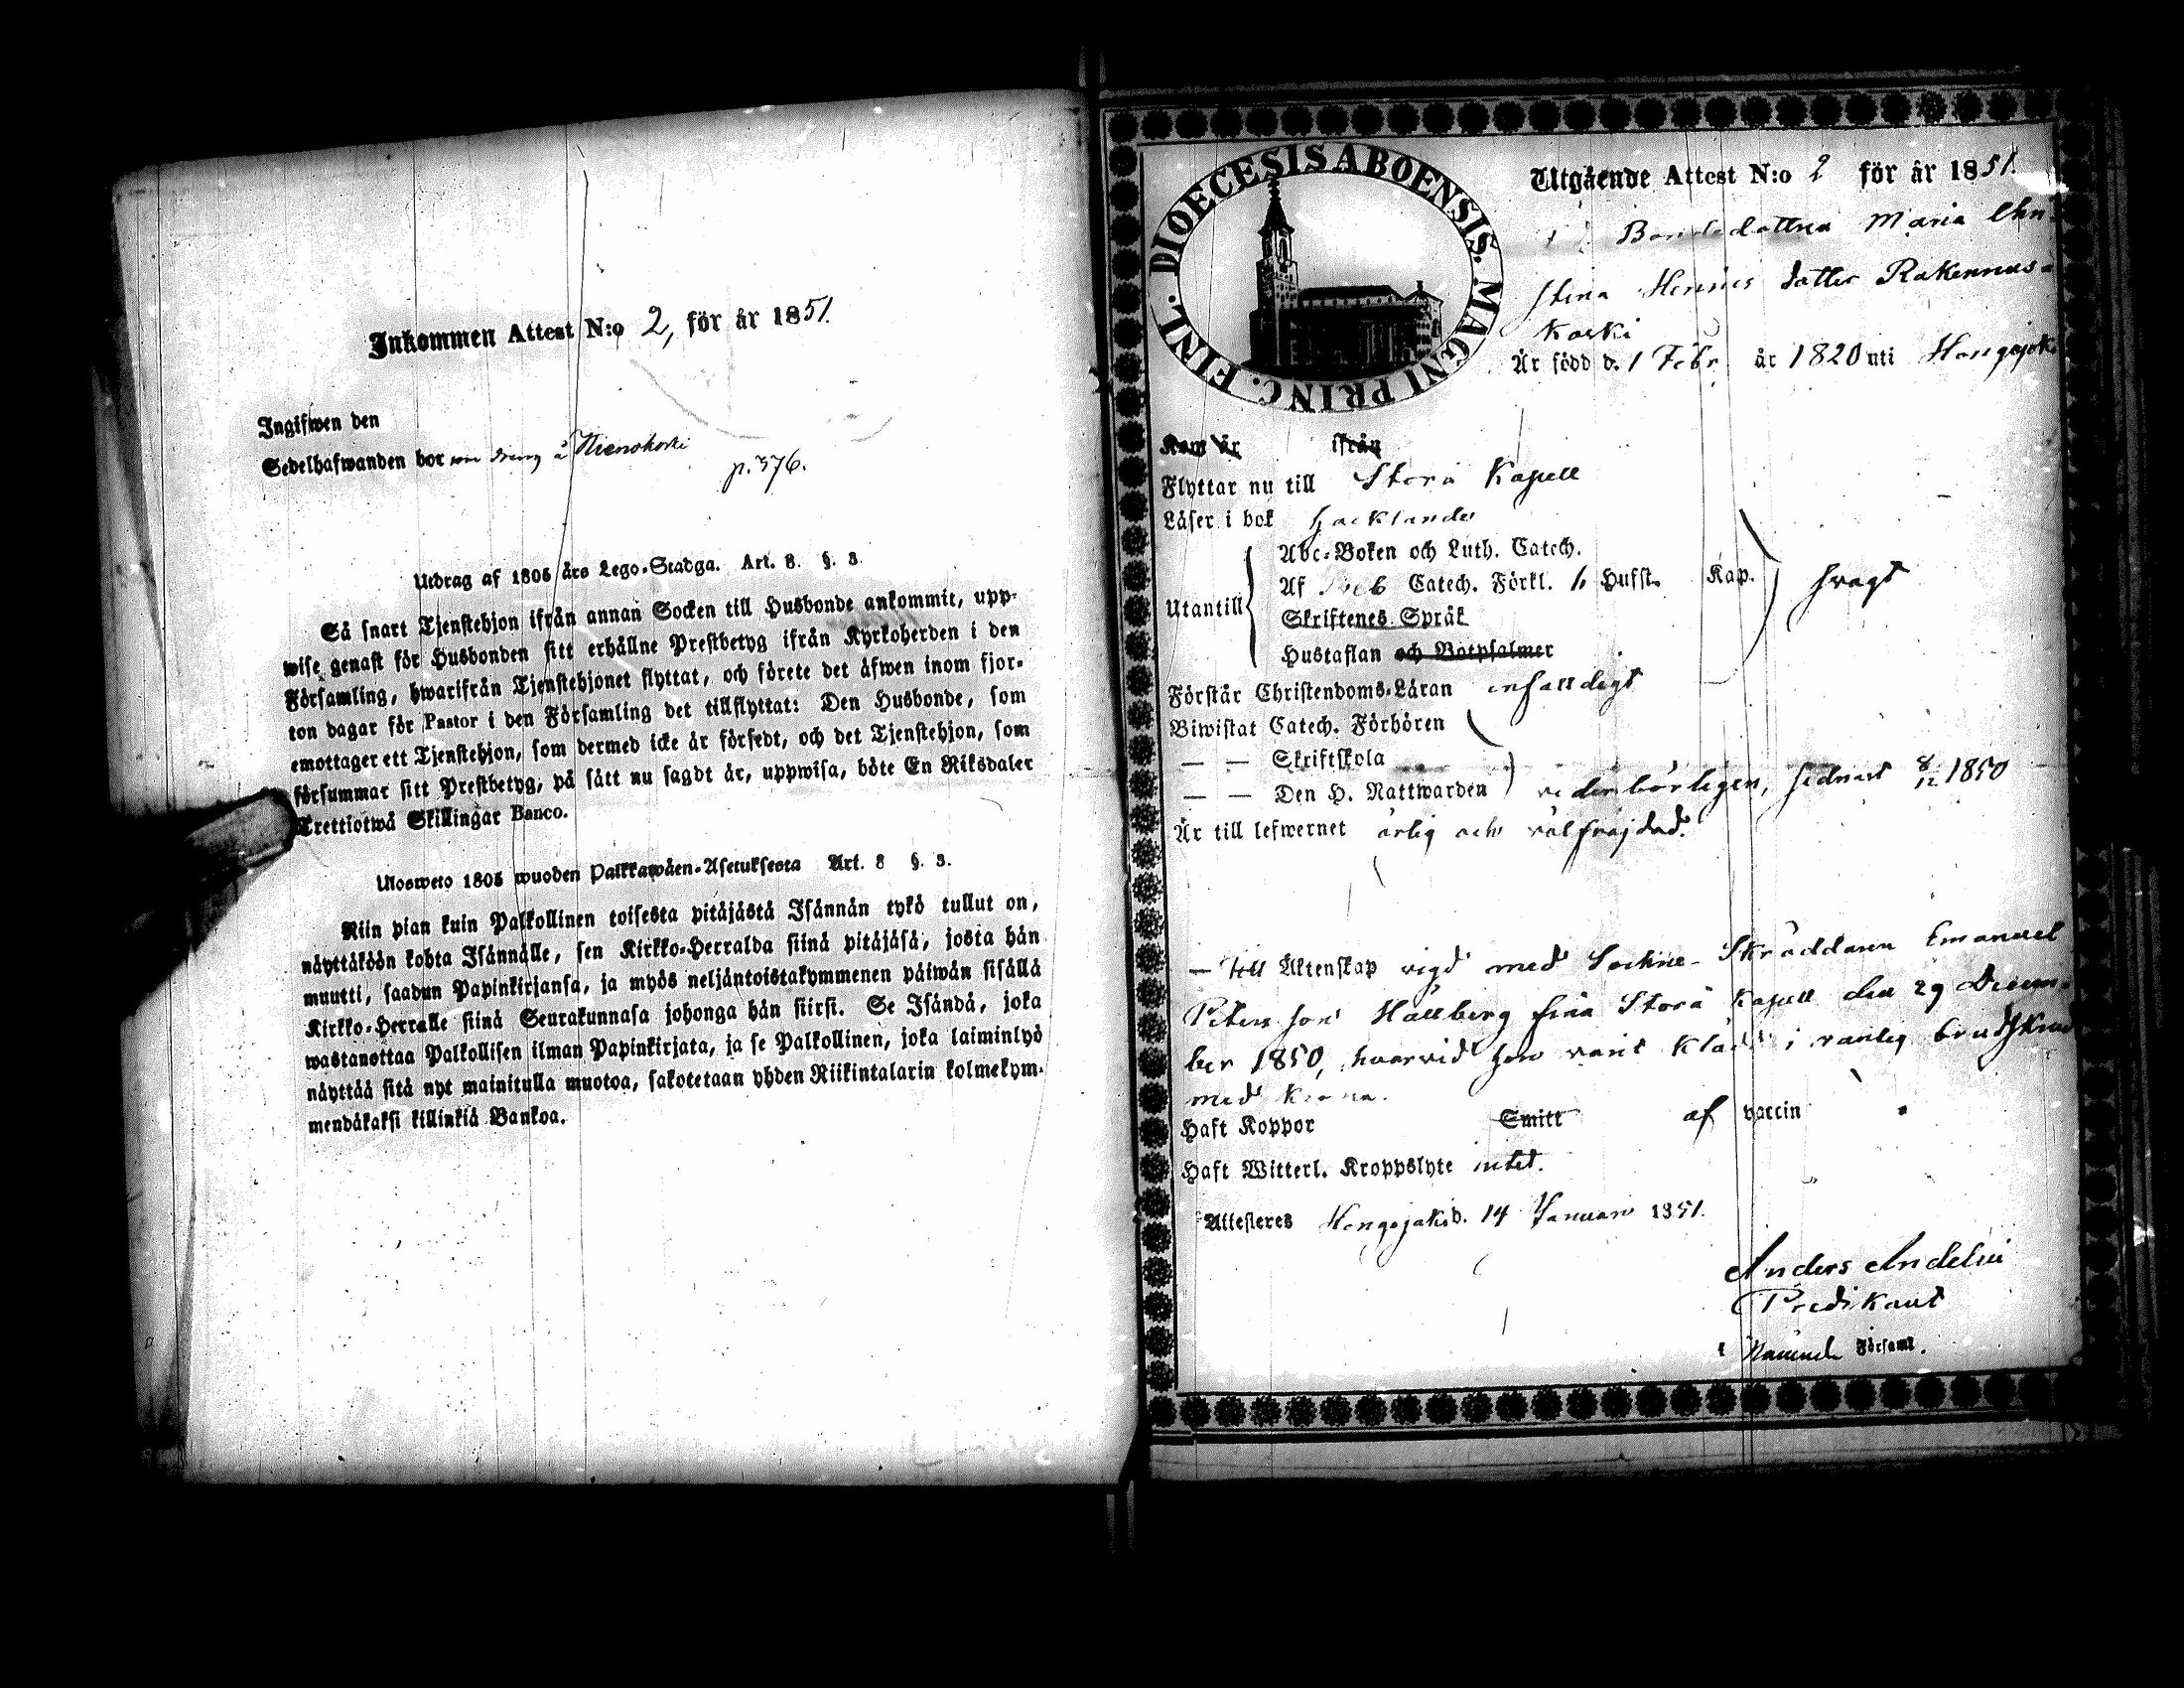 Inkommen Attest N:o 2, för år 1851.
Ingifwen den
Sedelhafwanden bor som dreng å
p. 376.
Utdrag af 1805 års Lego-Stadga. Art. 8. §. 3.
Så snart Tjenstehjon ifrån annan Socken till Husbonde ankommit, upp-
wise genast för Husbonden sitt erhållne Prestbetyg ifrån Kyrkoherden i den
Församling, hwarifrån Tjenstehjonet flyttat, och förete det äfwen inom fjor-
ton dagar för Pastor i den Församling det tillflyttat: Den Husbonde, som
emottager ett Tjenstehjon, som dermed icke är försedt, och det Tjenstehjon, som
försummar sitt Prestbetyg, på sätt nu sagdt är, uppwisa, böte En Riksdaler
Trettiotwå Skillingar Banco.
Ulosweto 1805 wuoden Palkkawäen-Asetuksesta Art. 8 §. 3.
Niin pian kuin Palkollinen toisesta pitäjästä Isännän tykö tullut on,
näyttäköön kohta Isännälle, sen Kirkko-Herralda siinä pitäjäsä, josta hän
muutti, saadun Papinkirjansa, ja myös neljäntoistakymmenen päiwän sisällä
Kirkko-Herralle siinä Seurakunnasa johonga hän siirsi. Se Isändä, joka
wastanottaa Palkollisen ilman Papinkirjata, ja se Palkollinen, joka laiminlyö
näyttää sitä nyt mainitulla muotoa, sakotetaan yhden Riikintalarin kolmekym-
mendäkaksi killinkiä Bankoa.
DIOECESIS ABOENSIS. MAGNI PRINC. FINL.
Utgående Attest N:o 2 för år 1851.
Bondedottren Maria Chri-
stina Henricsdotter Rakennus-
koski
Är född d. 1 Febr. år 1820 uti Hongojoki
Kom år ifrån
Flyttar nu till Storå Kapell
Läser i bok
Utantill
Abc-Boken och Luth. Catech.
Af Catech. Förkl. 6 Hufst. Kap.
Skriftenes Språk
Hustaflan och Botpsalmer
svagt
Förstår Christendoms-Läran enfalldigt
Biwistat Catech. Förhören
— — Skriftskola
— — Den H. Nattwarden vederbörligen, sednast 8/12 1850
Är till lefwernet ärlig och välfräjdad.
— Till Äktenskap vigd med Sockne-Skräddaren Emanuel
Petersson Hällberg från Storå Kapell den 29 Decem-
ber 1850, hvarvid hon varit klädd i vanlig brudskrud
med krona.
Haft Koppor Smitt af vaccin
Haft Witterl. Kroppslyte intet.
Attesteres Hongojoki d. 14 Januari 1851.
Anders Andelin
Predikant
i Församl.